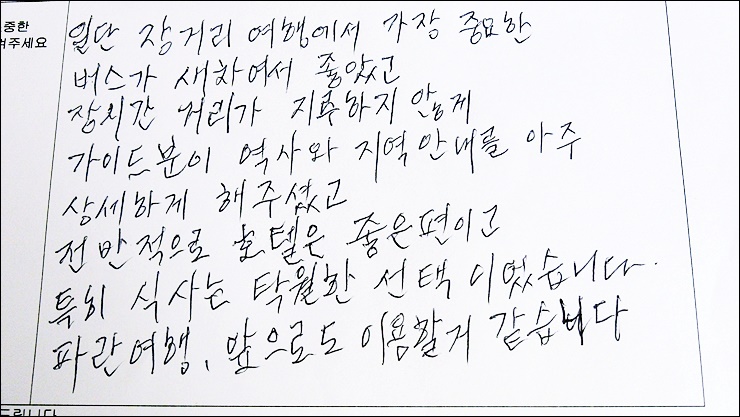 중한
겨주세요
일단 장거리 여행에서 가장 중요한
버스가 새차여서 좋았고
장시간 거리가 지루하지 않게
가이드분이 역사와 지역안내를 아주
상세하게 해주셨고
전반적으로 호텔은 좋은편이고
특히 식사는 탁월한 선택이었습니다.
파란여행, 앞으로도 이용할거 같습니다
드립니다